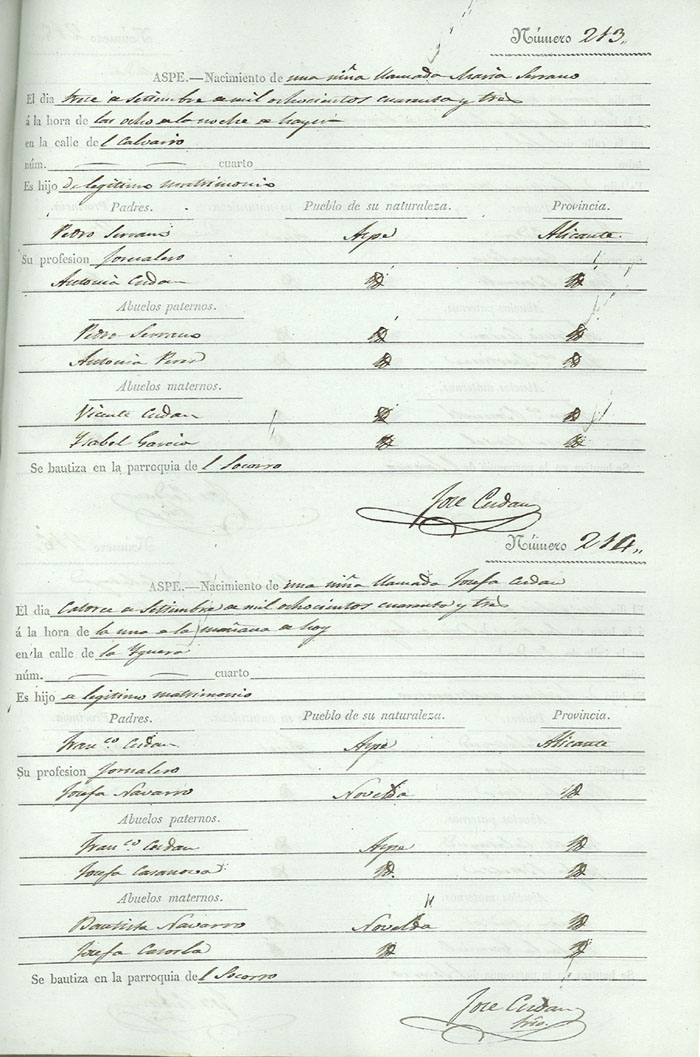 Número 213„
ASPE.—Nacimiento de una niña llamada Maria Serrano
El dia trece de Settiembre de mil ochocientos cuarenta y tres
á la hora de las ocho de la noche de
en la calle de l Calvario
núm. cuarto
Es hijo de legitimo matrimonio
Padres. Pueblo de su naturaleza. Provincia.
Pedro Serrano Aspe Alicante
Su profesion Jornalero
Antonia Cerdan Id Id
Abuelos paternos.
Pedro Serrano Id Id
Antonia Perez Id Id
Abuelos maternos.
Vicente Cerdan Id Id
Ysabel Garcia Id Id
Se bautiza en la parroquia de l Socorro
Jose Cerdan
Número 214„
ASPE.—Nacimiento de una niña llamada Josefa Cerdan
El dia Catorce de Settiembre de mil ochocientos cuarenta y tres
á la hora de la una de la mañana de hoy
en la calle de la Yguera
núm. cuarto
Es hijo de legitimo matrimonio
Padres. Pueblo de su naturaleza. Provincia.
Fran.co Cerdan Aspe Alicante
Su profesion Jornalero
Josefa Navarro Novelda Id
Abuelos paternos.
Fran.co Cerdan Aspe Id
Josefa Casanova Id. Id
Abuelos maternos.
Bautista Navarro Novelda Id
Josefa Cazorla Id Id
Se bautiza en la parroquia de l Socorro
Jose Cerdan